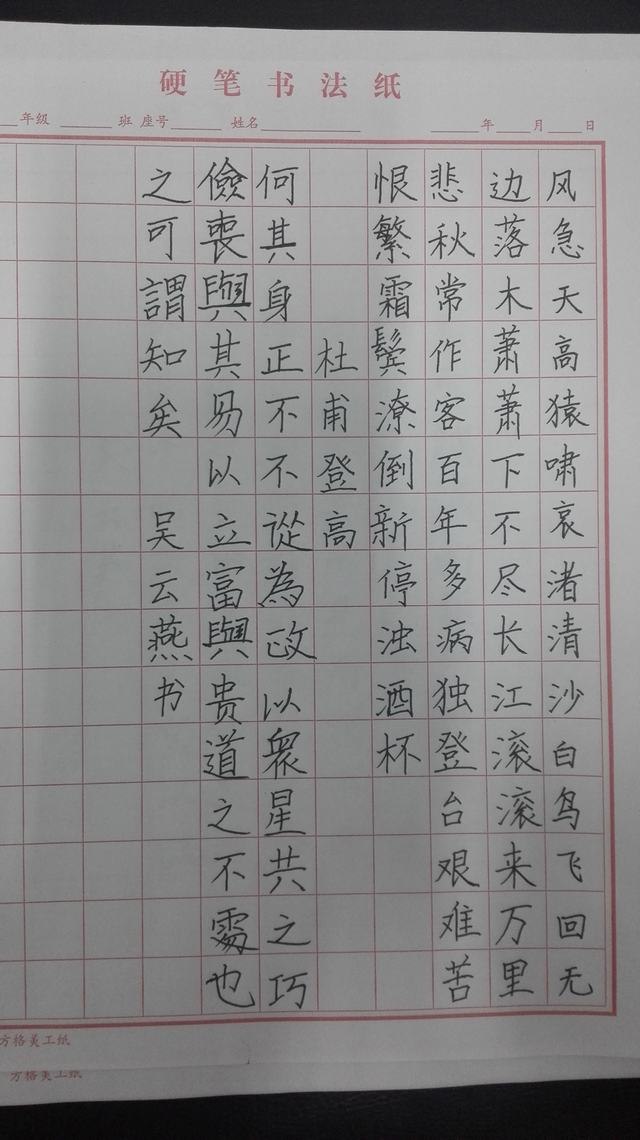 硬笔书法纸
年级 班 座号 姓名 年 月 日
风急天高猿啸哀渚清沙白鸟飞回无
边落木萧萧下不尽长江滚滚来万里
悲秋常作客百年多病独登台艰难苦
恨繁霜鬓潦倒新停浊酒杯
杜甫登高
何其身正不不從為政以眾星共之巧
儉喪與其易以立富與贵道之不處也
之可謂知矣 吴云燕书
方格美工纸
方格美工纸